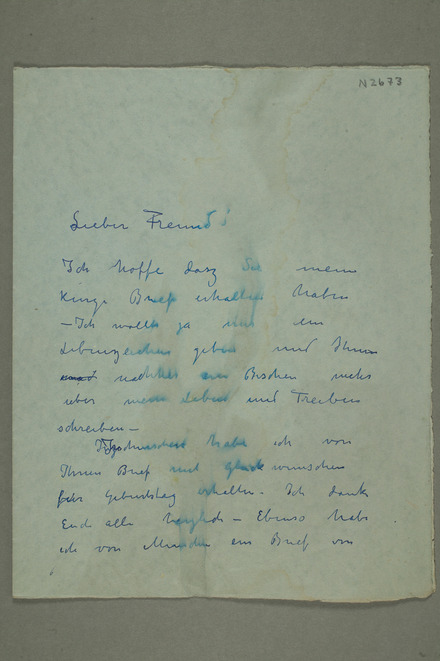 N2673
Lieber Freund!
Ich hoffe dasz Sie mein
kurze Brief erhalten haben
– Ich wollte ja nur ein
Lebenszeichen geben und Ihnen
nachher ein Bischen mehr
über mein Leben und Treiben
schreiben –
Inzwischen habe ich von
Ihnen Brief mit Glückwünschen
für Geburtstag erhalten. Ich danke
Euch alle herzlich – Ebenso habe
ich von München ein Brief von